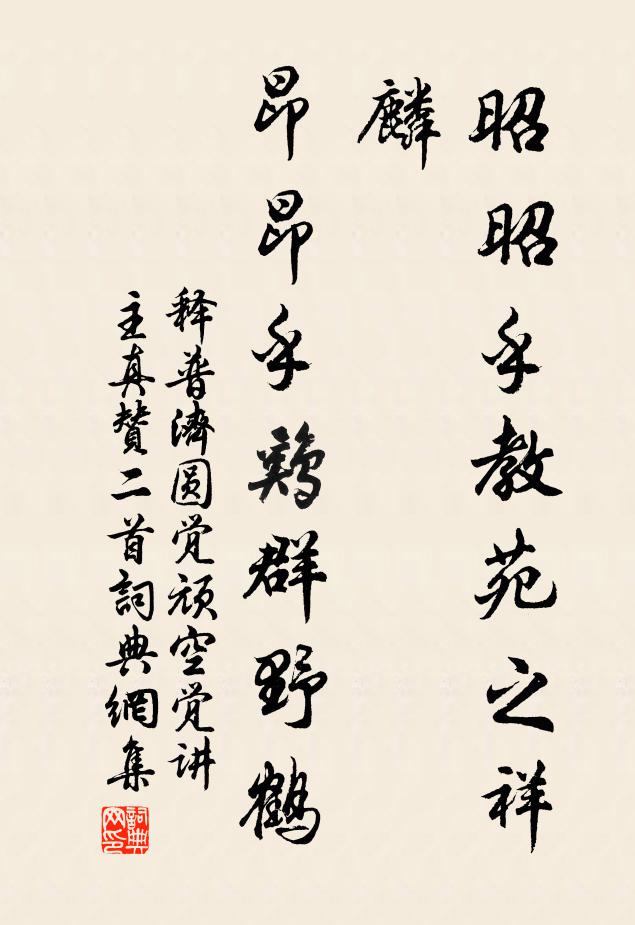 昭昭乎教苑之祥
麟
昂昂乎鷄群野鶴
释普濟圆觉顽空觉讲
主真贊二首詞典網集
詞典
网印